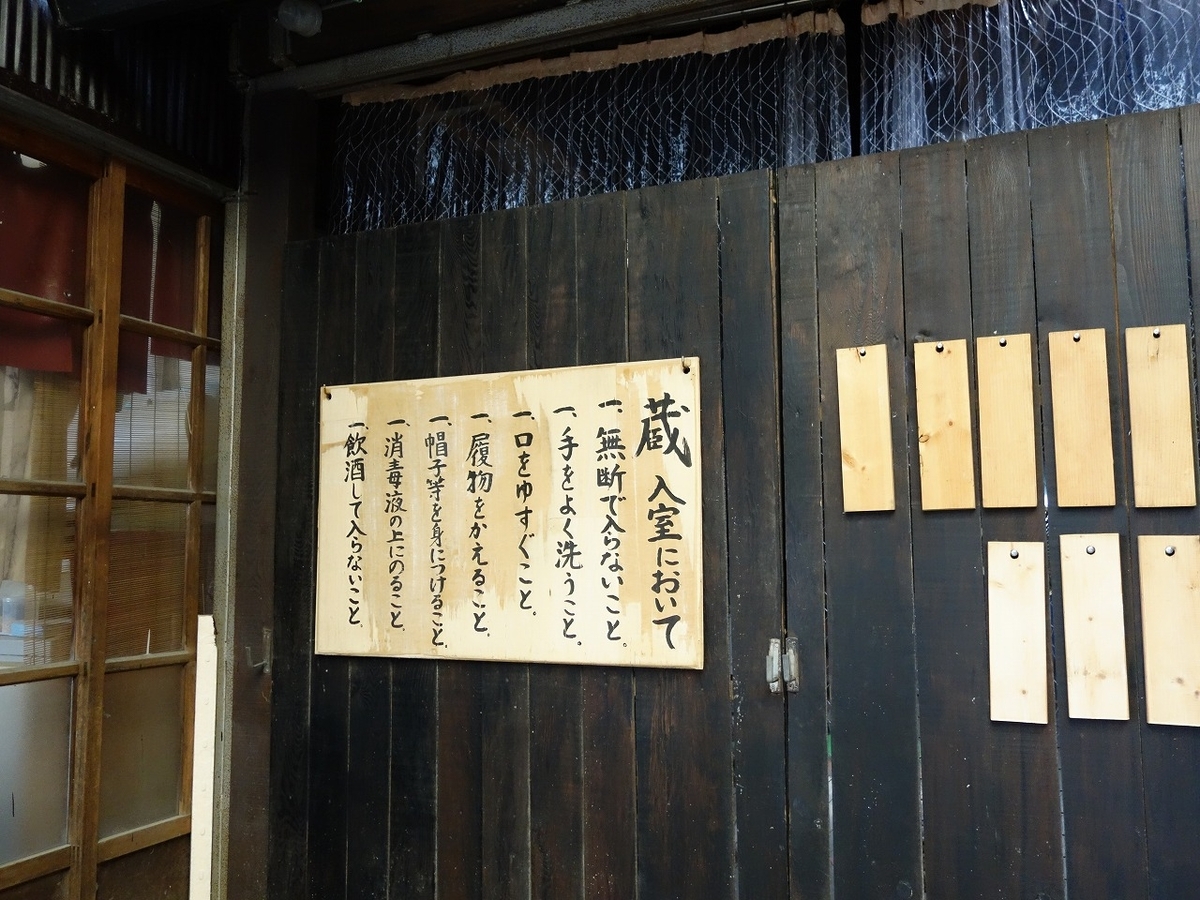 蔵 入室において
一、無断で入らないこと。
一、手をよく洗うこと。
一、口をゆすぐこと。
一、履物をかえること。
一、帽子等を身につけること。
一、消毒液の上にのること。
一、飲酒して入らないこと。